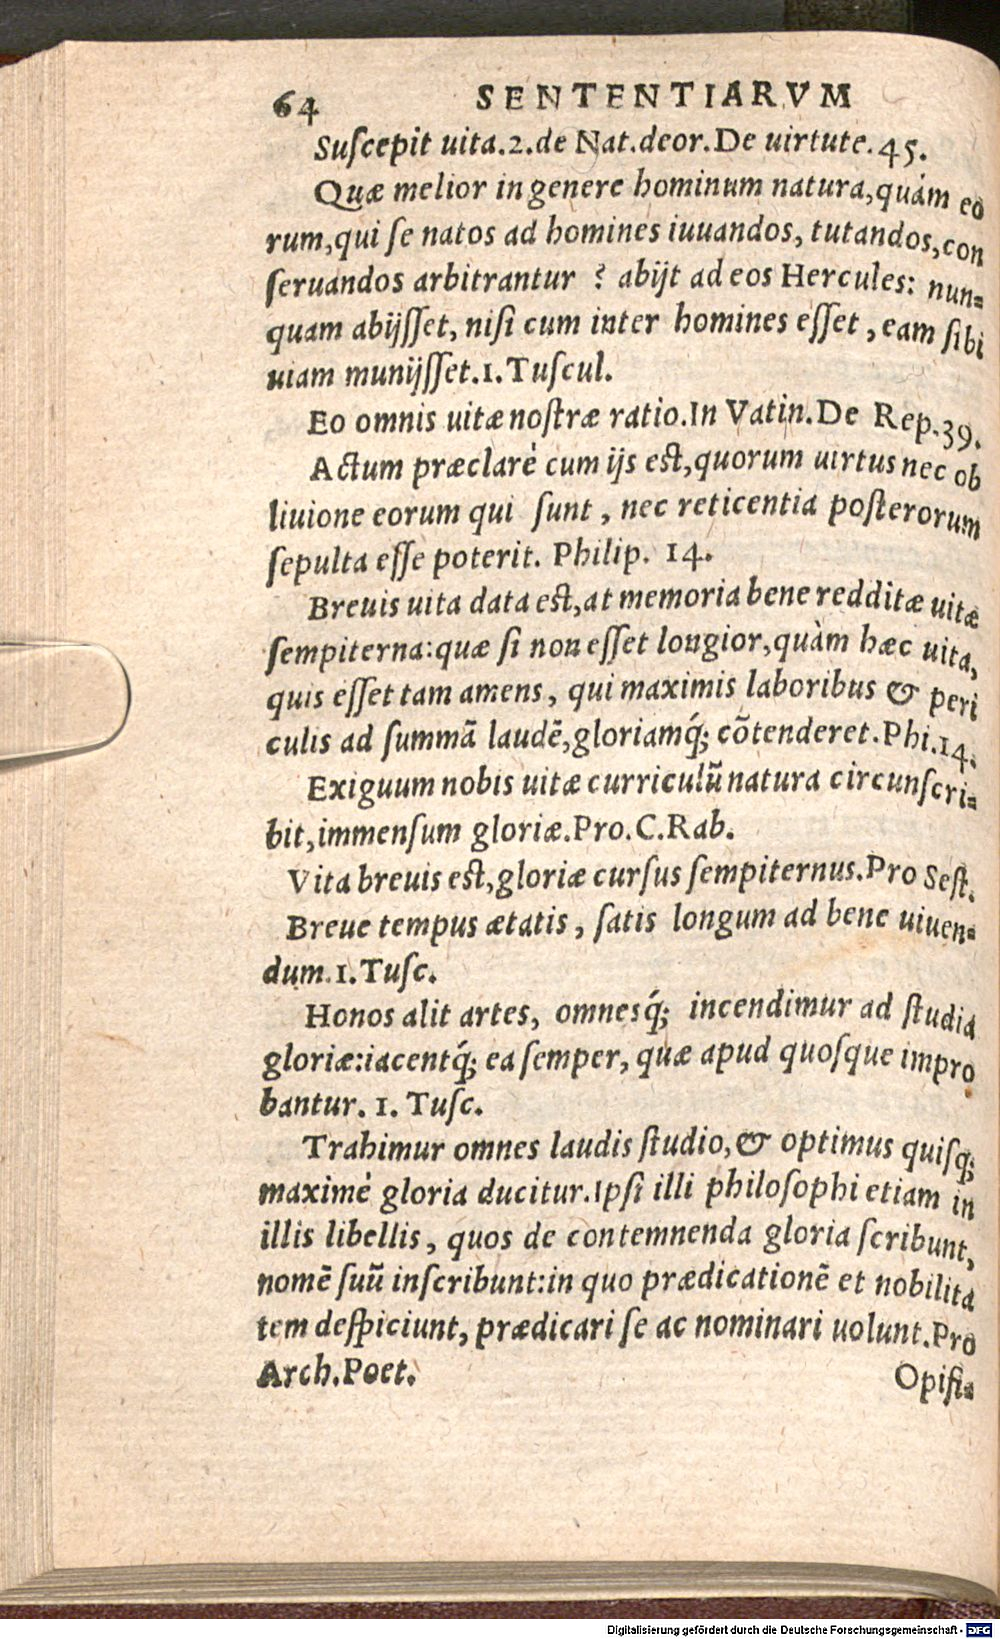 64 SENTENTIARVM
Suſcepit uita.2.de Nat.deor.De uirtute.45.
Quæ melior in genere hominum natura,quàm eo
rum,qui ſe natos ad homines iuuandos, tutandos,con
ſeruandos arbitrantur ? abijt ad eos Hercules: nun=
quam abijſſet, niſi cum inter homines eſſet , eam ſibi
uiam munijſſet.1.Tuſcul.
Eo omnis uitæ noſtræ ratio.In Vatin.De Rep.39.
Actum præclarè cum ijs eſt,quorum uirtus nec ob
liuione eorum qui ſunt , nec reticentia poſterorum
ſepulta eſſe poterit. Philip. 14.
Breuis uita data eſt,at memoria bene redditæ uitæ
ſempiterna:quæ ſi non eſſet longior,quàm hæc uita,
quis eſſet tam amens, qui maximis laboribus & peri
culis ad ſummã laudẽ,gloriamq́; cõtenderet.Phi.14.
Exiguum nobis uitæ curriculũ natura circunſcri=
bit,immenſum gloriæ.Pro.C.Rab.
Vita breuis eſt,gloriæ curſus ſempiternus.Pro Seſt.
Breue tempus ætatis , ſatis longum ad bene uiuen=
dum.1.Tuſc.
Honos alit artes, omnesq́; incendimur ad ſtudia
gloriæ:iacentq́; ea ſemper, quæ apud quoſque impro
bantur. 1. Tuſc.
Trahimur omnes laudis ſtudio,& optimus quiſq;
maximè gloria ducitur.Ipſi illi philoſophi etiam in
illis libellis, quos de contemnenda gloria ſcribunt,
nomẽ ſuũ inſcribunt:in quo prædicationẽ et nobilita
tem deſpiciunt, prædicari ſe ac nominari uolunt.Pro
Arch.Poet. Opifi=
Digitalisierung gefördert durch die Deutsche Forschungsgemeinschaft - DFG